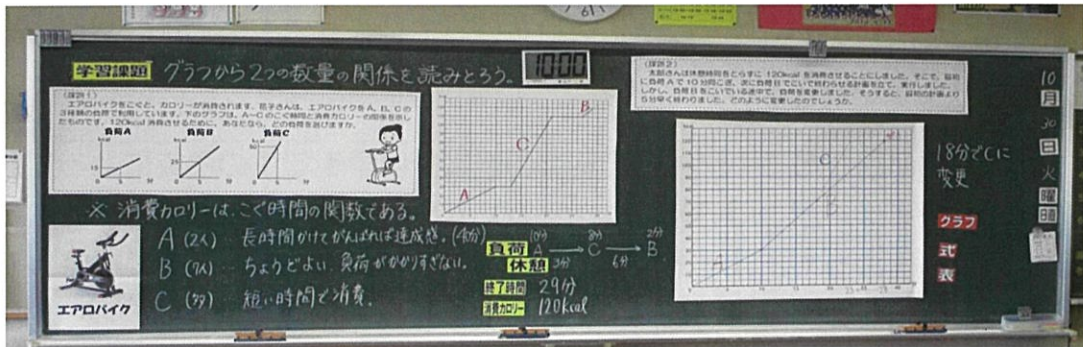 学習課題 グラフから2つの数量の関係を読みとろう。
10:00
(課題1)
エアロバイクをこぐと、カロリーが消費されます。花子さんは、エアロバイクをA、B、Cの
3種類の負荷で利用しています。下のグラフは、A~Cのこぐ時間と消費カロリーの関係を示し
たものです。120kcal消費させるために、あなたなら、どの負荷を選びますか。
負荷A 負荷B 負荷C
kcal kcal kcal
15 25 50
5 分 5 分 5 分
※ 消費カロリーは、こぐ時間の関数である。
A (2人) … 長時間かけてがんばれば達成感。(40分)
B (7人) … ちょうどよい。負荷がかかりすぎない。
C 短い時間で消費。
エアロバイク
A
C
B
負荷 A → C → B
10分 8分 2分
休憩 3分 6分
終了時間 29分
消費カロリー 120kcal
(課題2)
太郎さんは休憩時間をとらずに120kcalを消費させることにしました。そこで、最初
に負荷Aで10分間こぎ、次に負荷Bでこいで終わらせる計画を立て、実行しました。
しかし、負荷Bをこいでいる途中で、負荷を変更しました。そうすると、最初の計画より
5分早く終わりました。どのように変更したのでしょうか。
A
C
18分でCに
変更
グラフ
式
表
10
月
30
日
火
曜
日直